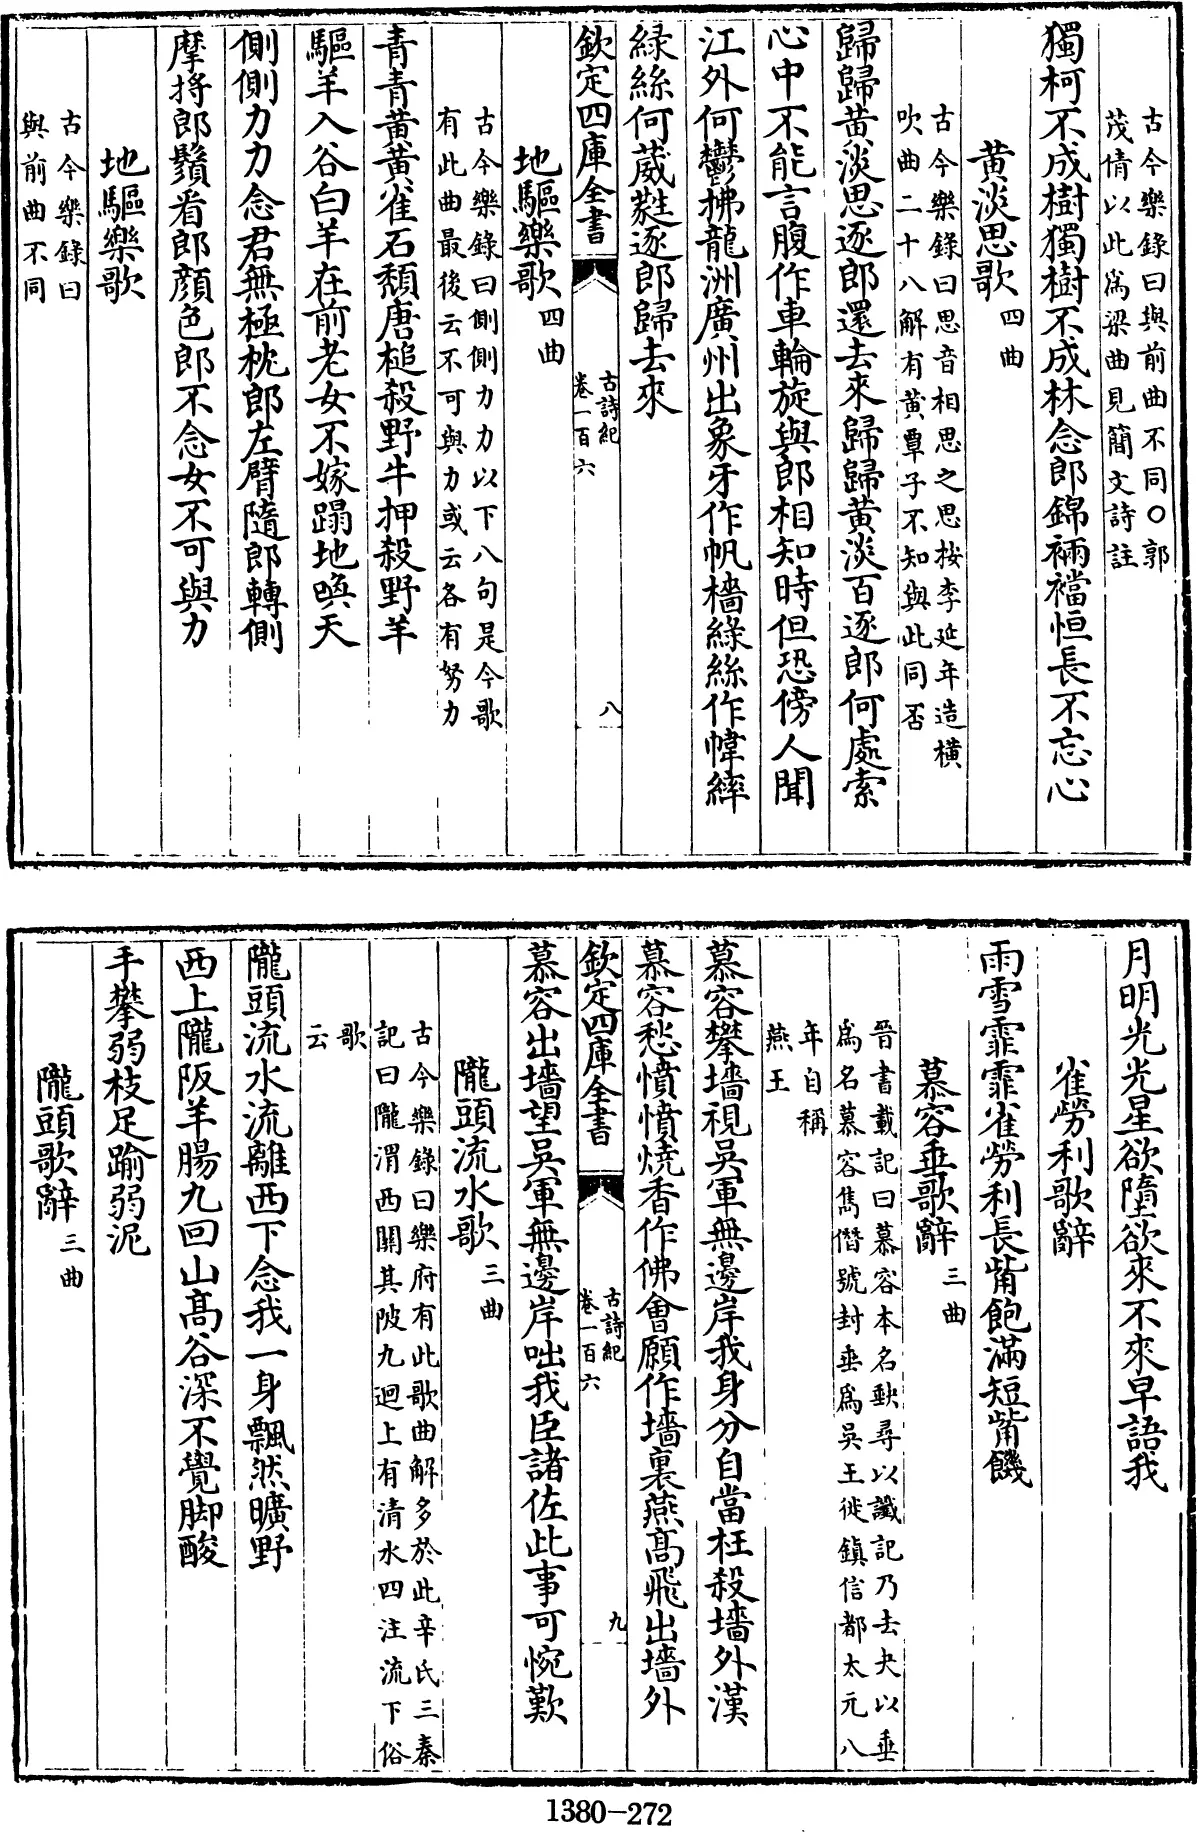 古今樂錄曰與前曲不同○郭
茂倩以此為梁曲見簡文詩註
獨柯不成樹獨樹不成林念郎錦裲襠恒長不忘心
黃淡思歌四曲
古今樂錄曰思音相思之思按李延年造橫
吹曲二十八解有黃覃子不知與此同否
歸歸黃淡思逐郎還去來歸歸黃淡百逐郎何處索
心中不能言腹作車輪旋與郎相知時但恐傍人聞
江外何鬱拂龍洲廣州出象牙作帆檣綠絲作幃繂
綠絲何葳蕤逐郎歸去來
欽定四庫全書
古詩紀
卷一百六
八
地驅樂歌四曲
古今樂錄曰側側力力以下八句是今歌
有此曲最後云不可與力或云各有努力
青青黃黃雀石頹唐槌殺野牛押殺野羊
驅羊入谷白羊在前老女不嫁蹋地喚天
側側力力念君無極枕郎左臂隨郎轉側
摩捋郎鬚看郎顏色郎不念女不可與力
地驅樂歌
古今樂錄曰
與前曲不同
月明光光星欲墮欲來不來早語我
雀勞利歌辭
雨雪霏霏雀勞利長觜飽滿短觜饑
慕容垂歌辭三曲
晉書載記曰慕容本名𡙇尋以讖記乃去夬以垂
為名慕容雋僭號封垂為吳王徙鎮信都太元八
年自稱
燕王
慕容攀墻視吳軍無邊岸我身分自當枉殺墻外漢
慕容愁憤憤燒香作佛會願作墻裏燕高飛出墻外
欽定四庫全書
古詩紀
卷一百六
九
慕容出墻望吳軍無邊岸咄我臣諸佐此事可惋歎
隴頭流水歌三曲
古今樂錄曰樂府有此歌曲解多於此辛氏三秦
記曰隴渭西關其陂九迴上有清水四注流下俗
歌
云
隴頭流水流離西下念我一身飄然曠野
西上隴阪羊腸九回山高谷深不覺脚酸
手攀弱枝足踰弱泥
隴頭歌辭三曲
1380-272